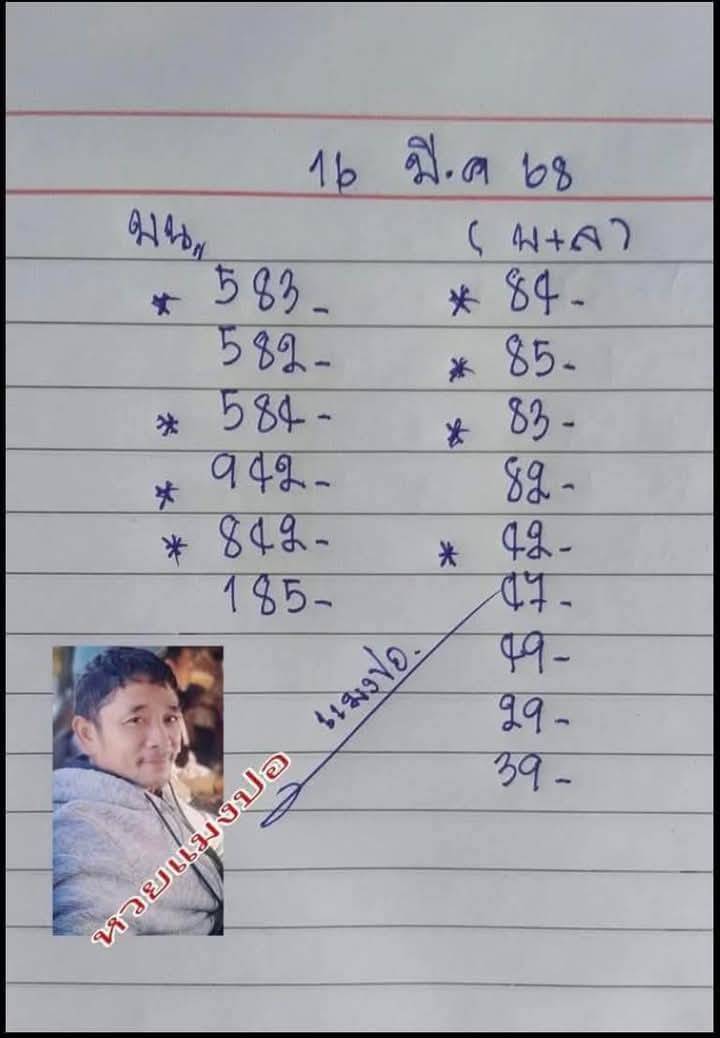 16 มี.ค 68
บน,, (บ+ล)
* 583- * 84-
582- * 85-
* 584- * 83-
* 942- 82-
* 842- * 42-
185- 47-
49-
29-
39-
แมงปอ.
หวยแมงปอ